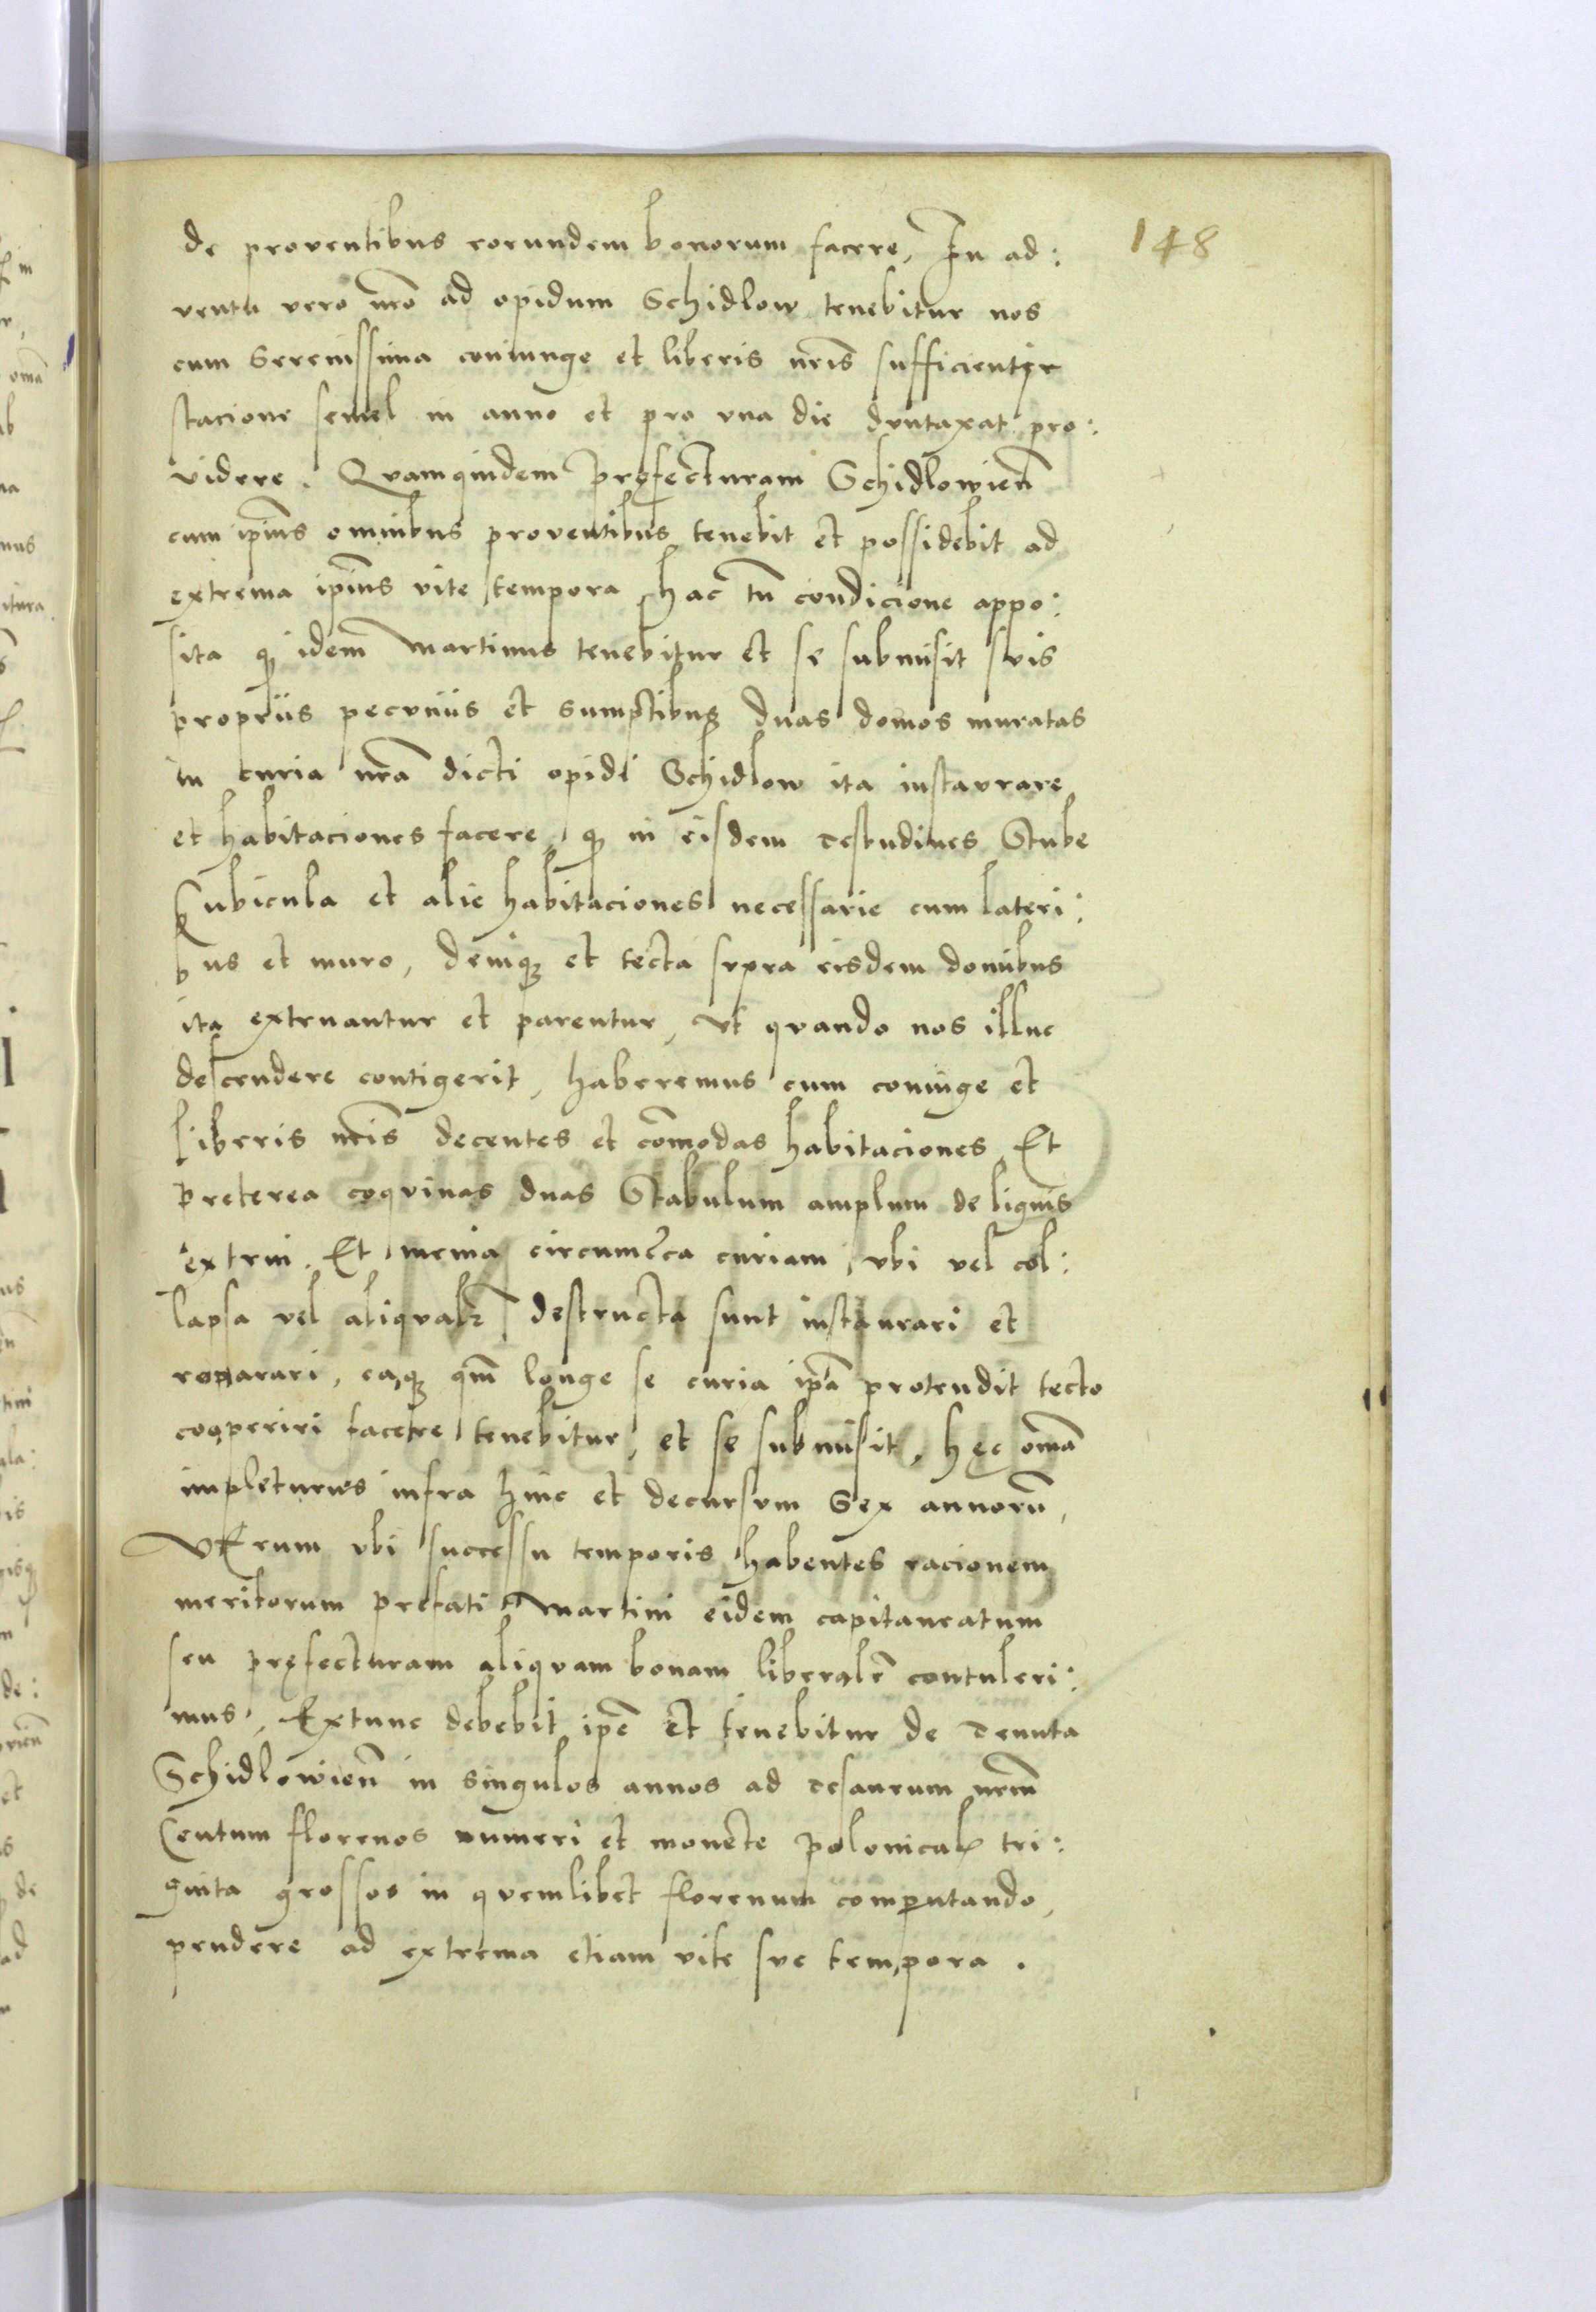 148
de proventibus eorundem bonorum facere, In ad:
ventu vero nr̃o ad opidum Schidlow tenebitur nos
cum Serenissima coniunge et liberis nr̃is sufficienter
stacione semel in anno et pro vna die duntaxat pro:
videre. Quamquidem pręfecturam Schidlowien̄
cum ip̄ius omnibus proventibus tenebit et possidebit ad
extrema ip̄ius vite tempora, hac tn̄ condicione appo:
sita qꝫ idem Martinus tenebitur et se submisit suis
propriis pecuniis et sumptibus duas domos muratas
in curia nr̃a dicti opidi Schidlow ita instaurare
et habitaciones facere, qꝫ in eisdem testudines Stube
Cubicula et alie habitaciones necessarie cum lateri:
bus et muro, deniqꝫ et tecta supra eisdem domibus
ita extruantur et parentur, vt quando nos illuc
descendere contigerit, haberemus cum coniuge et
liberis nr̃is decentes et com̄odas habitaciones, Et
preterea coquinas duas Stabulum amplum de lignis
extrui. Et menia circumcirca curiam, vbi vel col:
lapsa vel aliqualr̃ destructa sunt instaurari et
reparari, eaqꝫ qm̄ longe se curia ip̄a protendit tecto
cooperiri facere tenebitur, et se submisit, hęc om̄a
impleturus infra hinc et decursum Sex annorū,
VErum vbi successu temporis habentes racionem
meritorum prefati Martini eidem capitaneatum
seu pręfecturam aliquam bonam liberalr̃ contuleri:
mus, Extunc debebit ip̄e et tenebitur de tenuta
Schidlowien̄ in singulos annos ad tesaurum nr̃m
Centum florenos numeri et monete polonicalꝭ tri:
ginta grossos in quemlibet florenum computando,
pendere ad extrema etiam vite sue tempora.